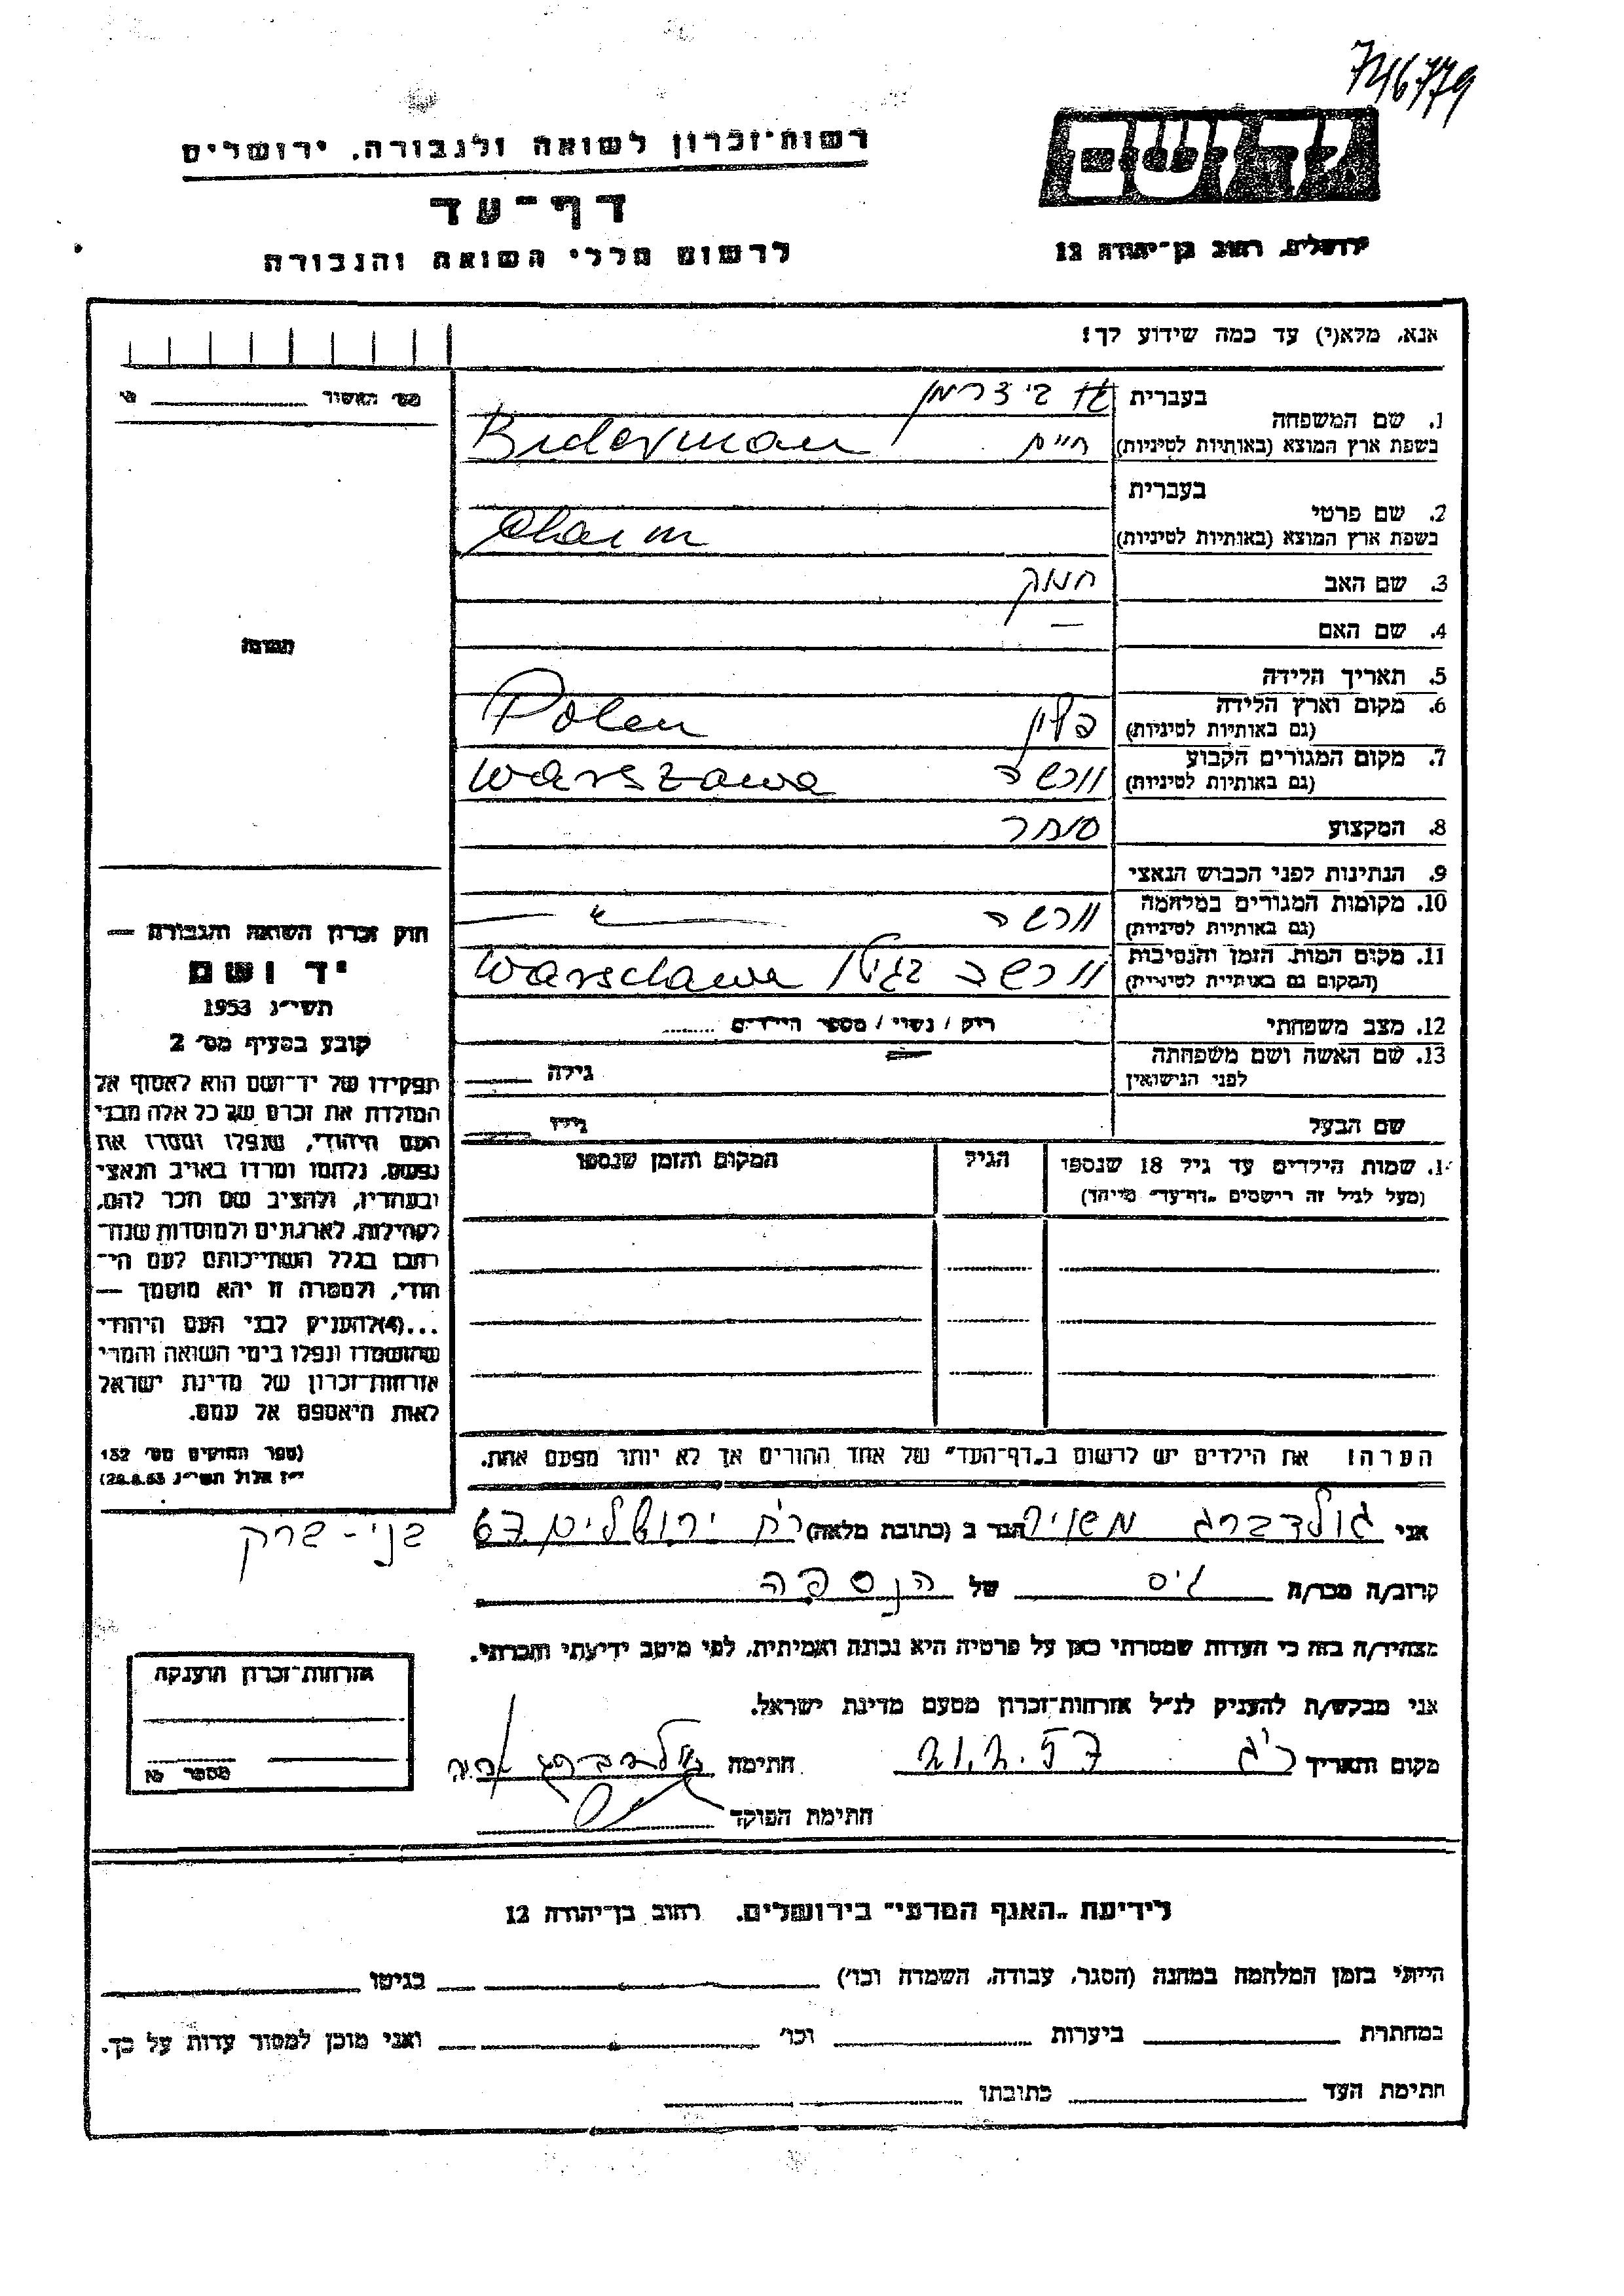 746779
רשות־זכרון לשואה ולגבורה. ירושלים
דף־עד
לרשום חללי השואה והגבורה
יד ושם
ירושלים, רחוב בן־יהודה 12
אנא, מלא(י) עד כמה שידוע לך!
מס׳ האשור
1. שם המשפחה
בעברית
בידרמן
בשפת ארץ המוצא (באותיות לטיניות)
חיים Biderman
2. שם פרטי
בעברית
בשפת ארץ המוצא (באותיות לטיניות)
Chaim
3. שם האב
חנוך
4. שם האם —
5. תאריך הלידה
6. מקום וארץ הלידה
(גם באותיות לטיניות)
פולין Polen
7. מקום המגורים הקבוע
(גם באותיות לטיניות)
וורשה Warszawa
8. המקצוע סוחר
9. הנתינות לפני הכבוש הנאצי
10. מקומות המגורים במלחמה
(גם באותיות לטיניות)
וורשה
11. מקום המות, הזמן והנסיבות
(המקום גם באותיות לטיניות)
וורשה Warschawa
12. מצב משפחתי
רוק / נשוי / מספר הילדים
13. שם האשה ושם משפחתה
לפני הנישואין
גילה
שם הבעל
גילו
תמונה
חוק זכרון השואה והגבורה —
יד ושם
תשי״ג 1953
קובע בסעיף מס׳ 2
תפקידו של יד־ושם הוא לאסוף אל
המולדת את זכרם של כל אלה מבני
העם היהודי, שנפלו ומסרו את
נפשם, נלחמו ומרדו באויב הנאצי
ובעוזריו, ולהציב שם וזכר להם,
לקהילות, לארגונים ולמוסדות שנח־
רבו בגלל השתייכותם לעם הי־
הודי, ולמטרה זו יהא מוסמך —
...(4)להעניק לבני העם היהודי
שהושמדו ונפלו בימי השואה והמרי
אזרחות־זכרון של מדינת ישראל
לאות היאספם אל עמם.
(ספר החוקים מס׳ 132
י״ז אלול תשי״ג 28.8.53)
14. שמות הילדים עד גיל 18 שנספו
(מעל לגיל זה רישמים „דף־עד״ מיוחד)
הגיל
המקום והזמן שנספו
הערה: את הילדים יש לרשום ב„דף־העד״ של אחד ההורים אך לא יותר מפעם אחת.
אני גולדברג הגר ב (כתובת מלאה) רח ירושלים 67
בני־ברק
קרוב/ה מכר/ה גיס של הנספה
מצהיר/ה בזה כי העדות שמסרתי כאן על פרטיה היא נכונה ואמיתית, לפי מיטב ידיעתי והכרתי.
אני מבקש/ת להעניק לנ״ל אזרחות־זכרון מטעם מדינת ישראל.
מקום ותאריך 21.2.57 חתימה
חתימת הפוקד
אזרחות־זכרון הוענקה
מספר
לידיעת „האגף המדעי״ בירושלים. רחוב בן־יהודה 12
הייתי בזמן המלחמה במחנה (הסגר, עבודה, השמדה וכו׳) בגיטו
במחתרת ביערות וכו׳ ואני מוכן למסור עדות על כך.
חתימת העד כתובתו